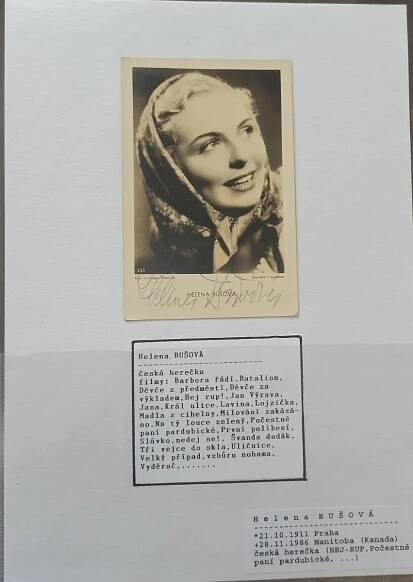 243
HELENA BUŠOVÁ
Helena Bušová
Helena BUŠOVÁ
česká herečka
filmy: Barbora řádí,Batalion,
Děvče z předměstí,Děvče za
výkladem,Hej rup!,Jan Výrava,
Jana,Král ulice,Lavina,Lojzička,
Madla z cihelny,Milování zakázá-
no.Na tý louce zelený,Počestné
paní pardubické,První políbení,
Slávko,nedej se!, Švanda dudák,
Tři vejce do skla,Uličnice,
Velký případ,vzhůru nohama,
Vyděrač,.......
Helena BUŠOVÁ
*21.10.1911 Praha
+28.11.1986 Manitoba (Kanada)
česká herečka (HEJ-RUP,Počestné
paní pardubické, ...)